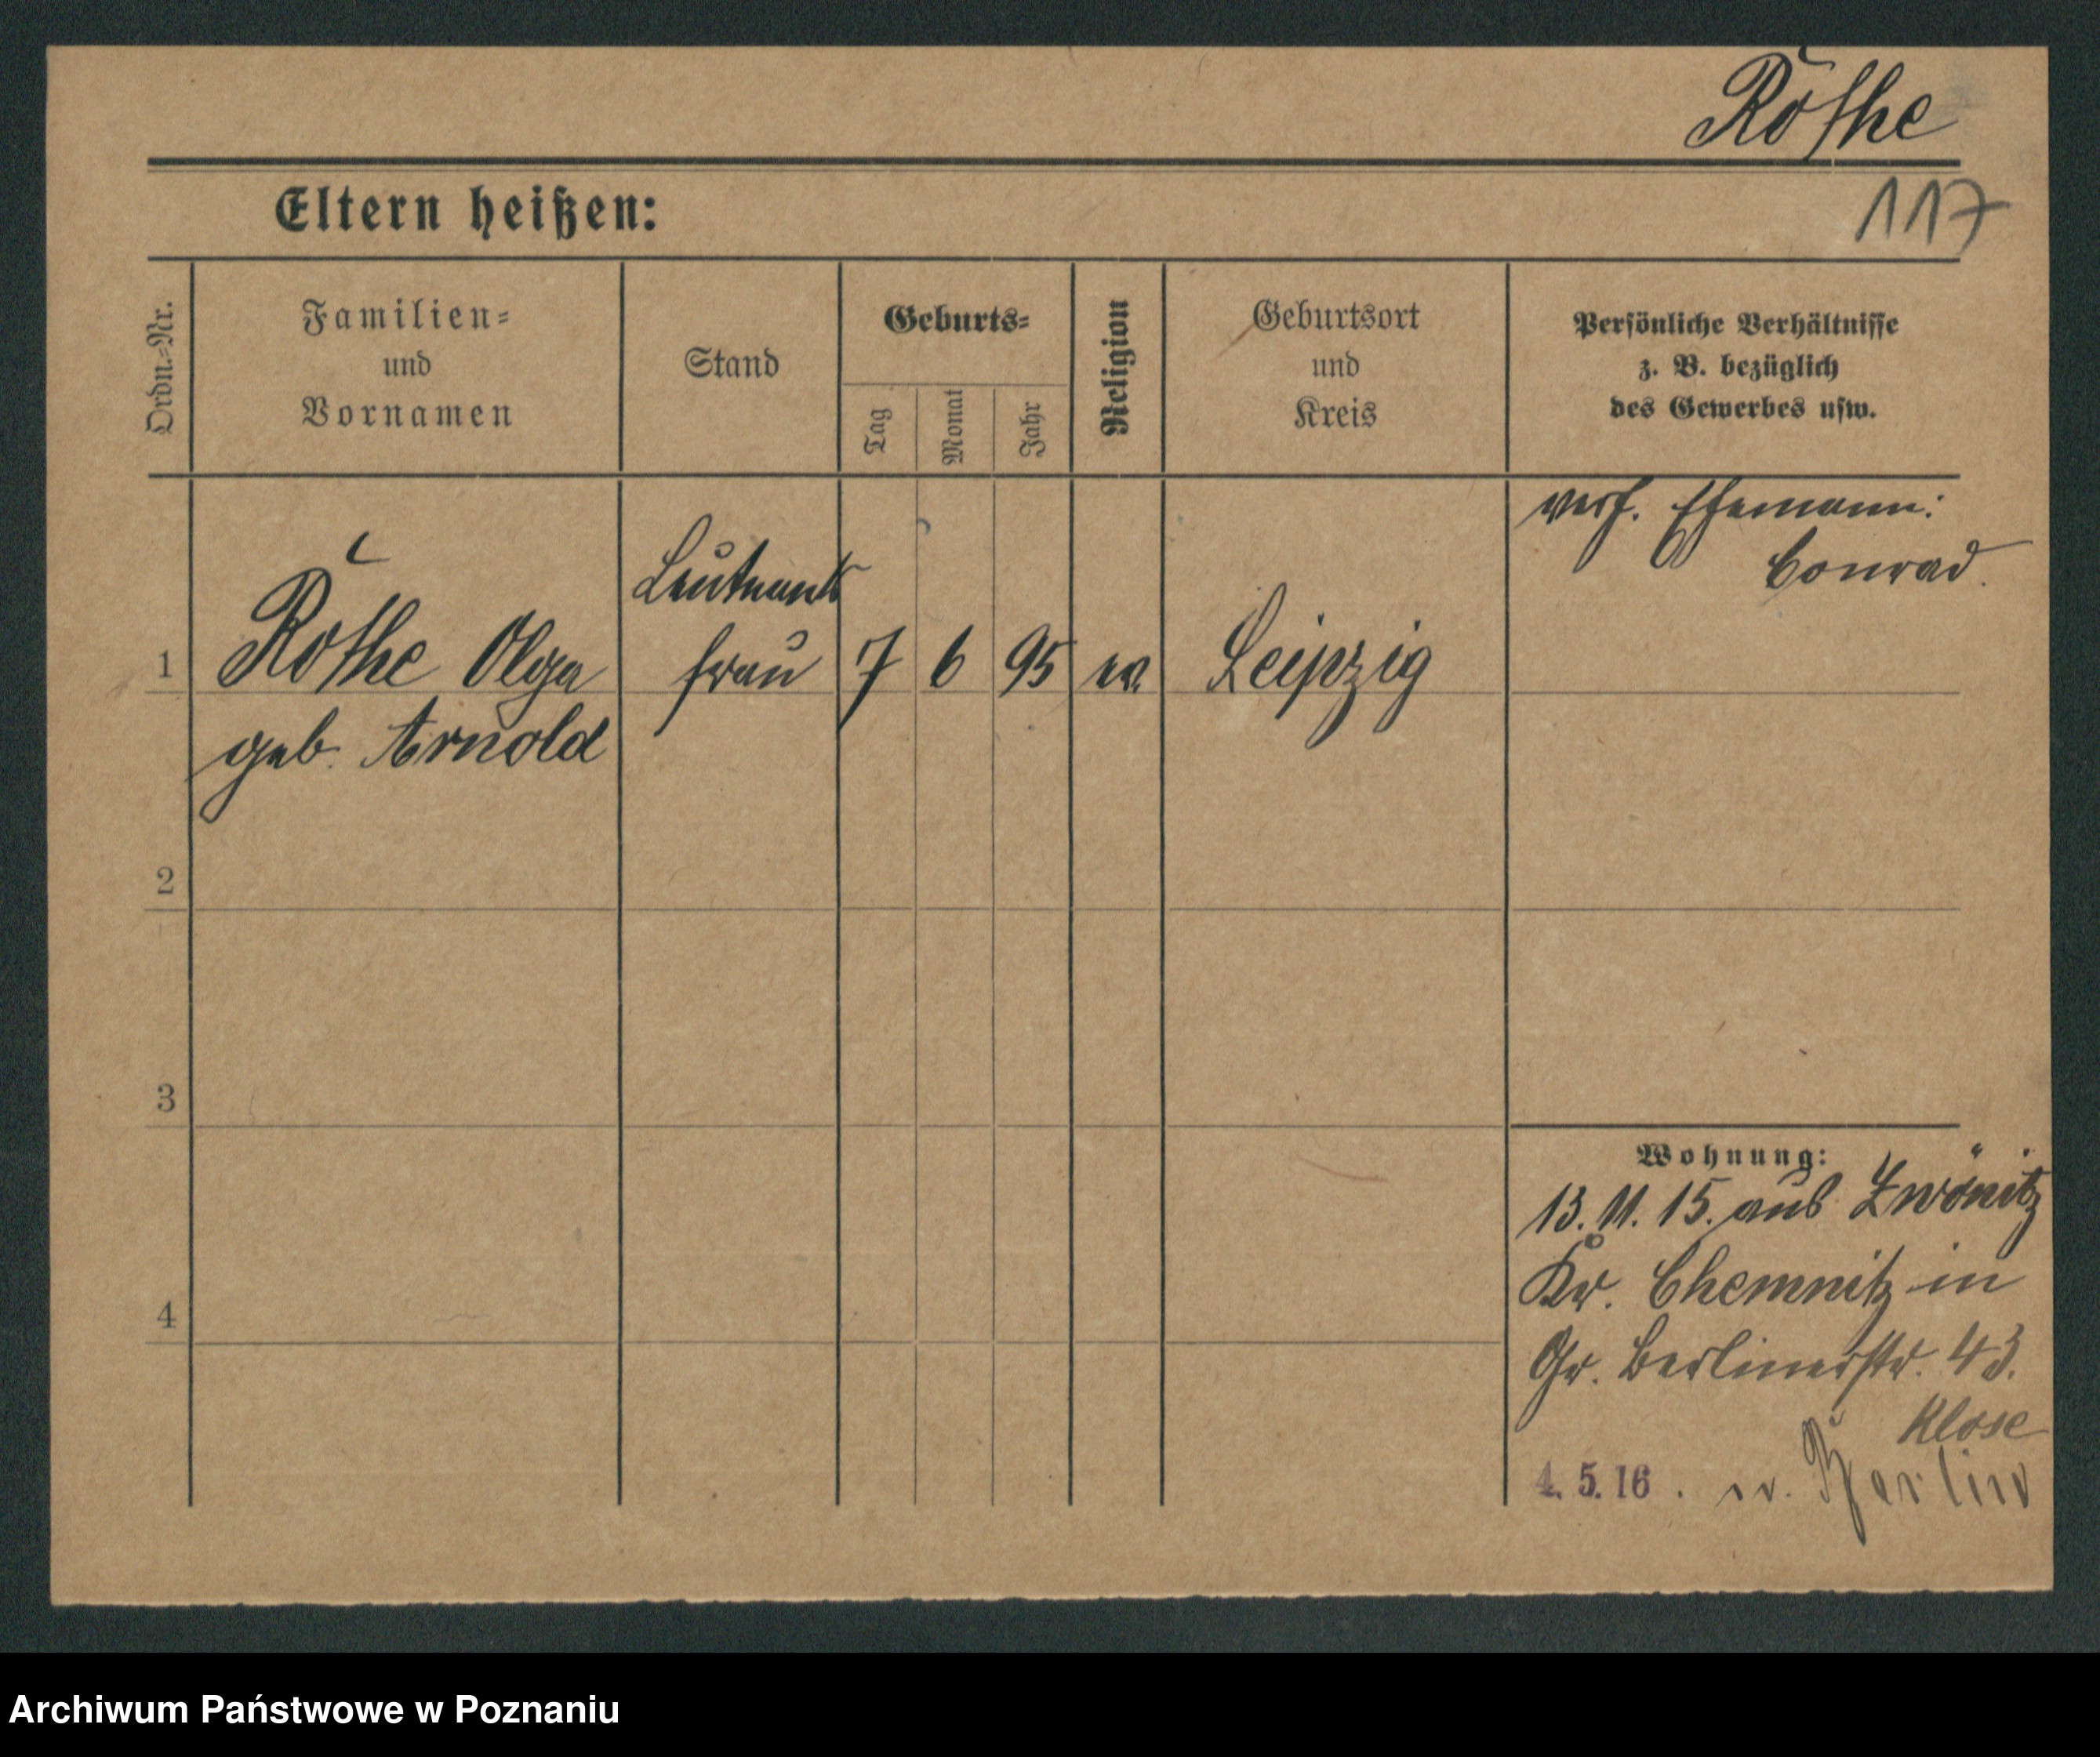 Röthe
Eltern heißen:
117
Ordn.=Nr.
Familien=
und
Vornamen
Stand
Geburts=
Tag
Monat
Jahr
Religion
Geburtsort
und
Kreis
Persönliche Verhältnisse
z. B. bezüglich
des Gewerbes usw.
Ehemann:
Conrad.
Leutnants
1 Röthe Olga frau 7 6 95 ev. Leipzig
geb. Arnold
2
3
4
Wohnung:
13. 11. 15. aus Zwönitz
Kr. Chemnitz in
Gr. Berlinerstr. 43.
Klose
4. 5. 16. n. Berlin
Archiwum Państwowe w Poznaniu